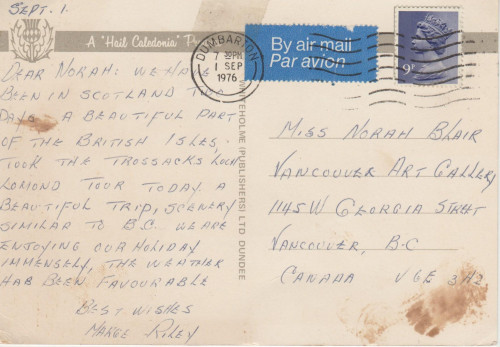 SEPT. 1.
A "Hail Caledonia" P
DEAR NORAH: WE HAVE
BEEN IN SCOTLAND TWO
DAYS - A BEAUTIFUL PART
OF THE BRITISH ISLES.
TOOK THE TROSSACKS LOCH
LOMOND TOUR TODAY. A
BEAUTIFUL TRIP, SCENERY
SIMILAR TO B.C. WE ARE
ENJOYING OUR HOLIDAY
IMMENSELY, THE WEATHER
HAS BEEN FAVOURABLE
BEST WISHES
MARGE RILEY
WHITEHOLME (PUBLISHERS) LTD DUNDEE
DUMBARTON
7 30PM
1 SEP
1976
By air mail
Par avion
9P
MISS NORAH BLAIR
VANCOUVER ART GALLERY
1145 W GEORGIA STREET
VANCOUVER, B.C
CANADA V6E 3H2